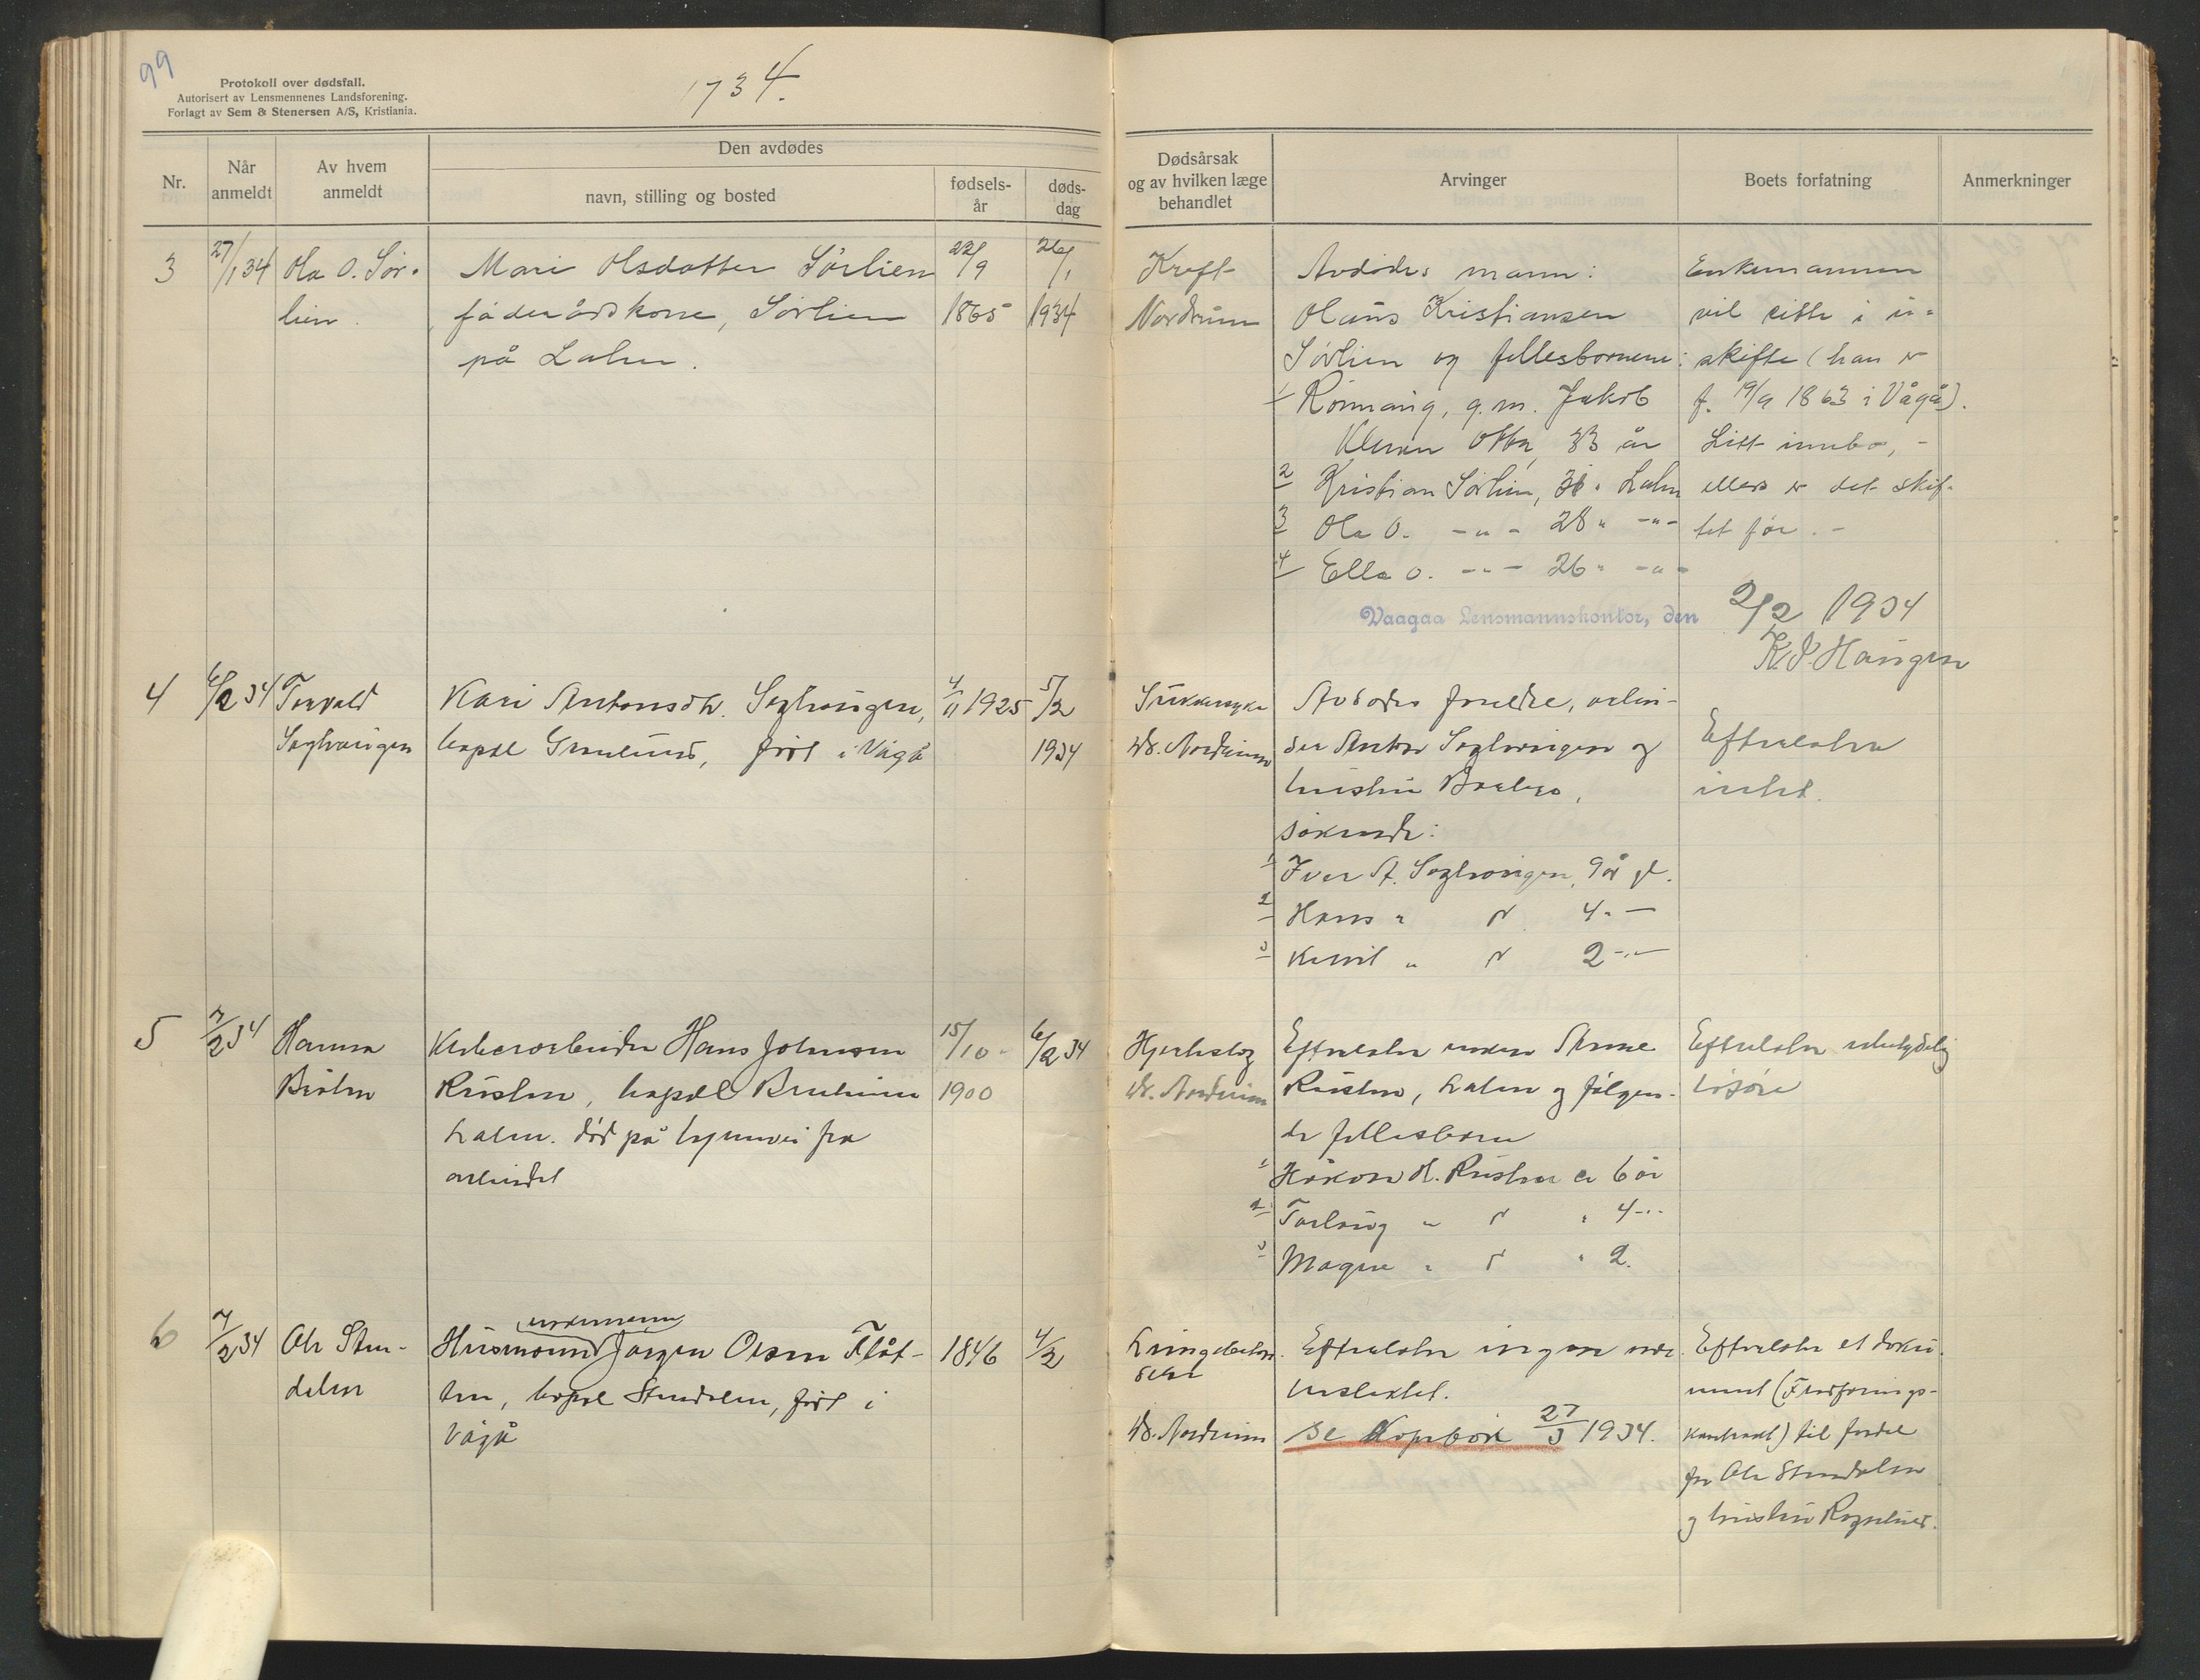 99
Protokoll over dødsfall.
Autorisert av Lensmennenes Landsforening.
Forlagt av Sem & Stenersen A/S, Kristiania.
1934.
Nr.
Når anmeldt
Av hvem anmeldt
Den avdødes
navn, stilling og bosted
fødsels-år
døds-dag
Dødsårsak og av hvilken læge behandlet
Arvinger
Boets forfatning
Anmerkninger
3
27/1 34
Ola O. Sør-
lien.
Mari Olsdatter Sörlien
föderådskone, Sörlien
på Lalm.
22/9
1865
26/1
1934
Kreft
Nordrum
Avdödes mann:
Olaus Kristiansen
Sörlien og fellesbornene:
1 Rönnaug, g.m. Jakob
Otta, 33 år
2 Kristian Sörlien, 31 " Lalm
3 Ola O. -"- 28 " -"-
4 Ella O. -"- 26 " -"-
Enkemannen
vil sitte i u-
skifte (han er
f. 19/9 1863 i Vågå).
Litt innbo, -
ellers er det skif-
tet før. -
Vaagaa Lensmannskontor, den 2/2 1934
K. Haugen
4
6/2 34
Torvald
Saghaugen
Kari Antonsdtr. Saghaugen,
bopæl Grønlund, født i Vågå
4/11 1925
5/2
1934
Sukkersyke
Dr. Nordrum
Avdødes foreldre, arbei-
der Anton Saghaugen og
hustru
søskende:
1 Iver A. Saghaugen, 9 år gl.
2 Hans " " 4 " -
3 " " 2 -"-
Efterlater
intet.
5
7/2 34
Hans Johnsen
Rusten, bopæl
Lalm. død på hjemvei fra
arbeidet
15/10
1900
6/2 34
Hjerteslag
Dr. Nordrum
Efterlater enken Anne
Rusten, Lalm og følgen-
de fellesbarn
1 Håkon H. Rusten ca 6 år
2 Torlaug " " " 4 -"-
3 Magne " " " 2.
Efterlater ubetydelig
løsøre
6
7/2 34
Ole Sten-
dalen
enkemann
Husmann Jørgen Olsen Flåt-
ten, bopæl Stendalen, født i
Vågå
1846
4/2
Lungebeten-
delse
Dr. Nordrum
Efterlater ingen nær-
beslektet.
Se Kopibok 27/3 1934.
Efterlater et doku-
ment (Fredførings-
kontrakt) til fordel
for Ole Stendalen
og hustru Ragnhild.